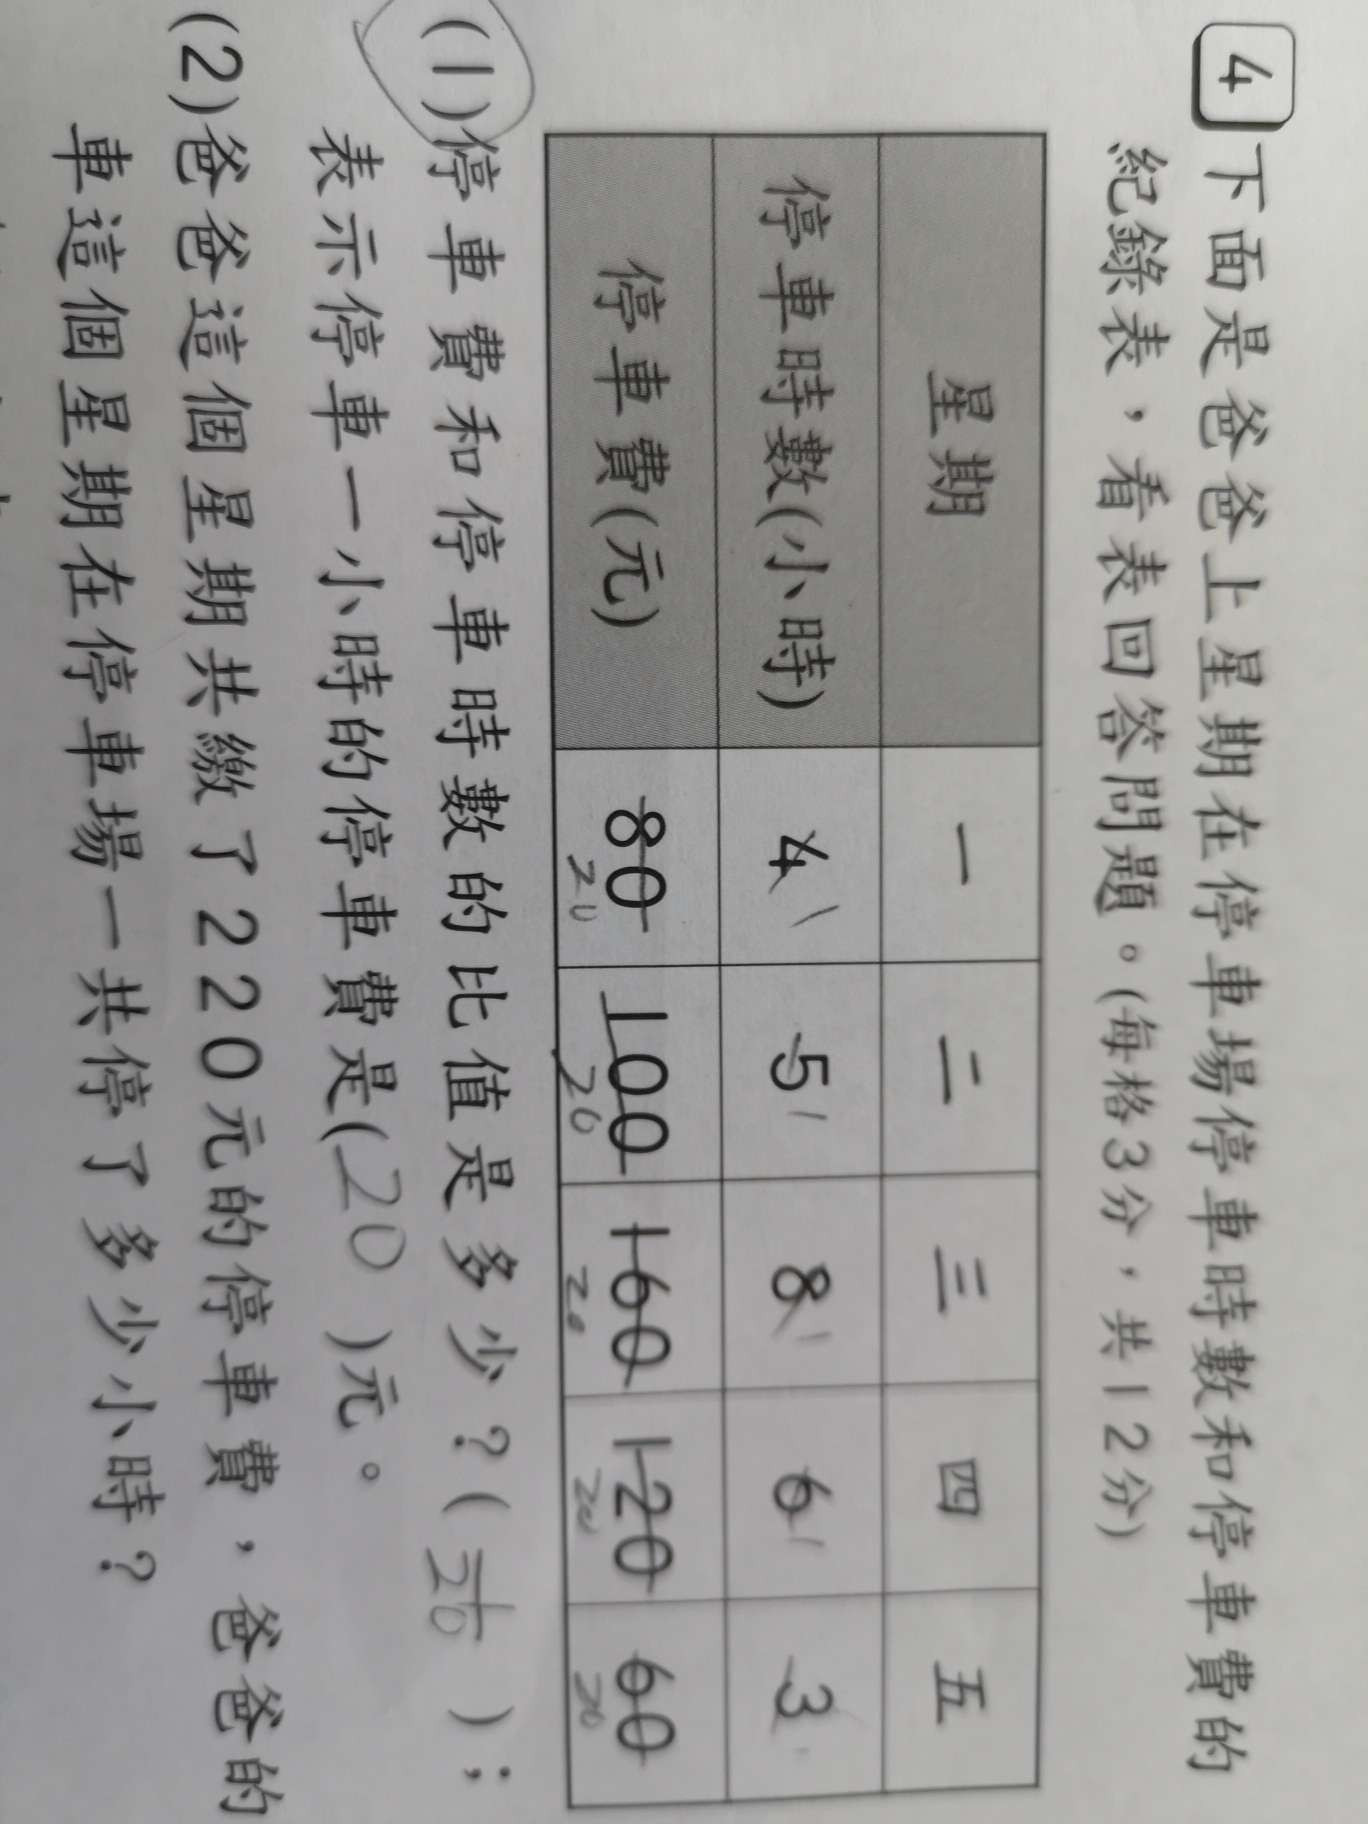 4 下面是爸爸上星期在停車場停車時數和停車費的
紀錄表，看表回答問題。(每格3分，共12分)
星期 一 二 三 四 五
停車時數(小時) 4 1 5 1 8 1 6 1 3
停車費(元) 80 100 160 120 60
20 20 20 20 20
(1)停車費和停車時數的比值是多少？( 1/20 )；
表示停車一小時的停車費是( 20 )元。
(2)爸爸這個星期共繳了220元的停車費，爸爸的
車這個星期在停車場一共停了多少小時？